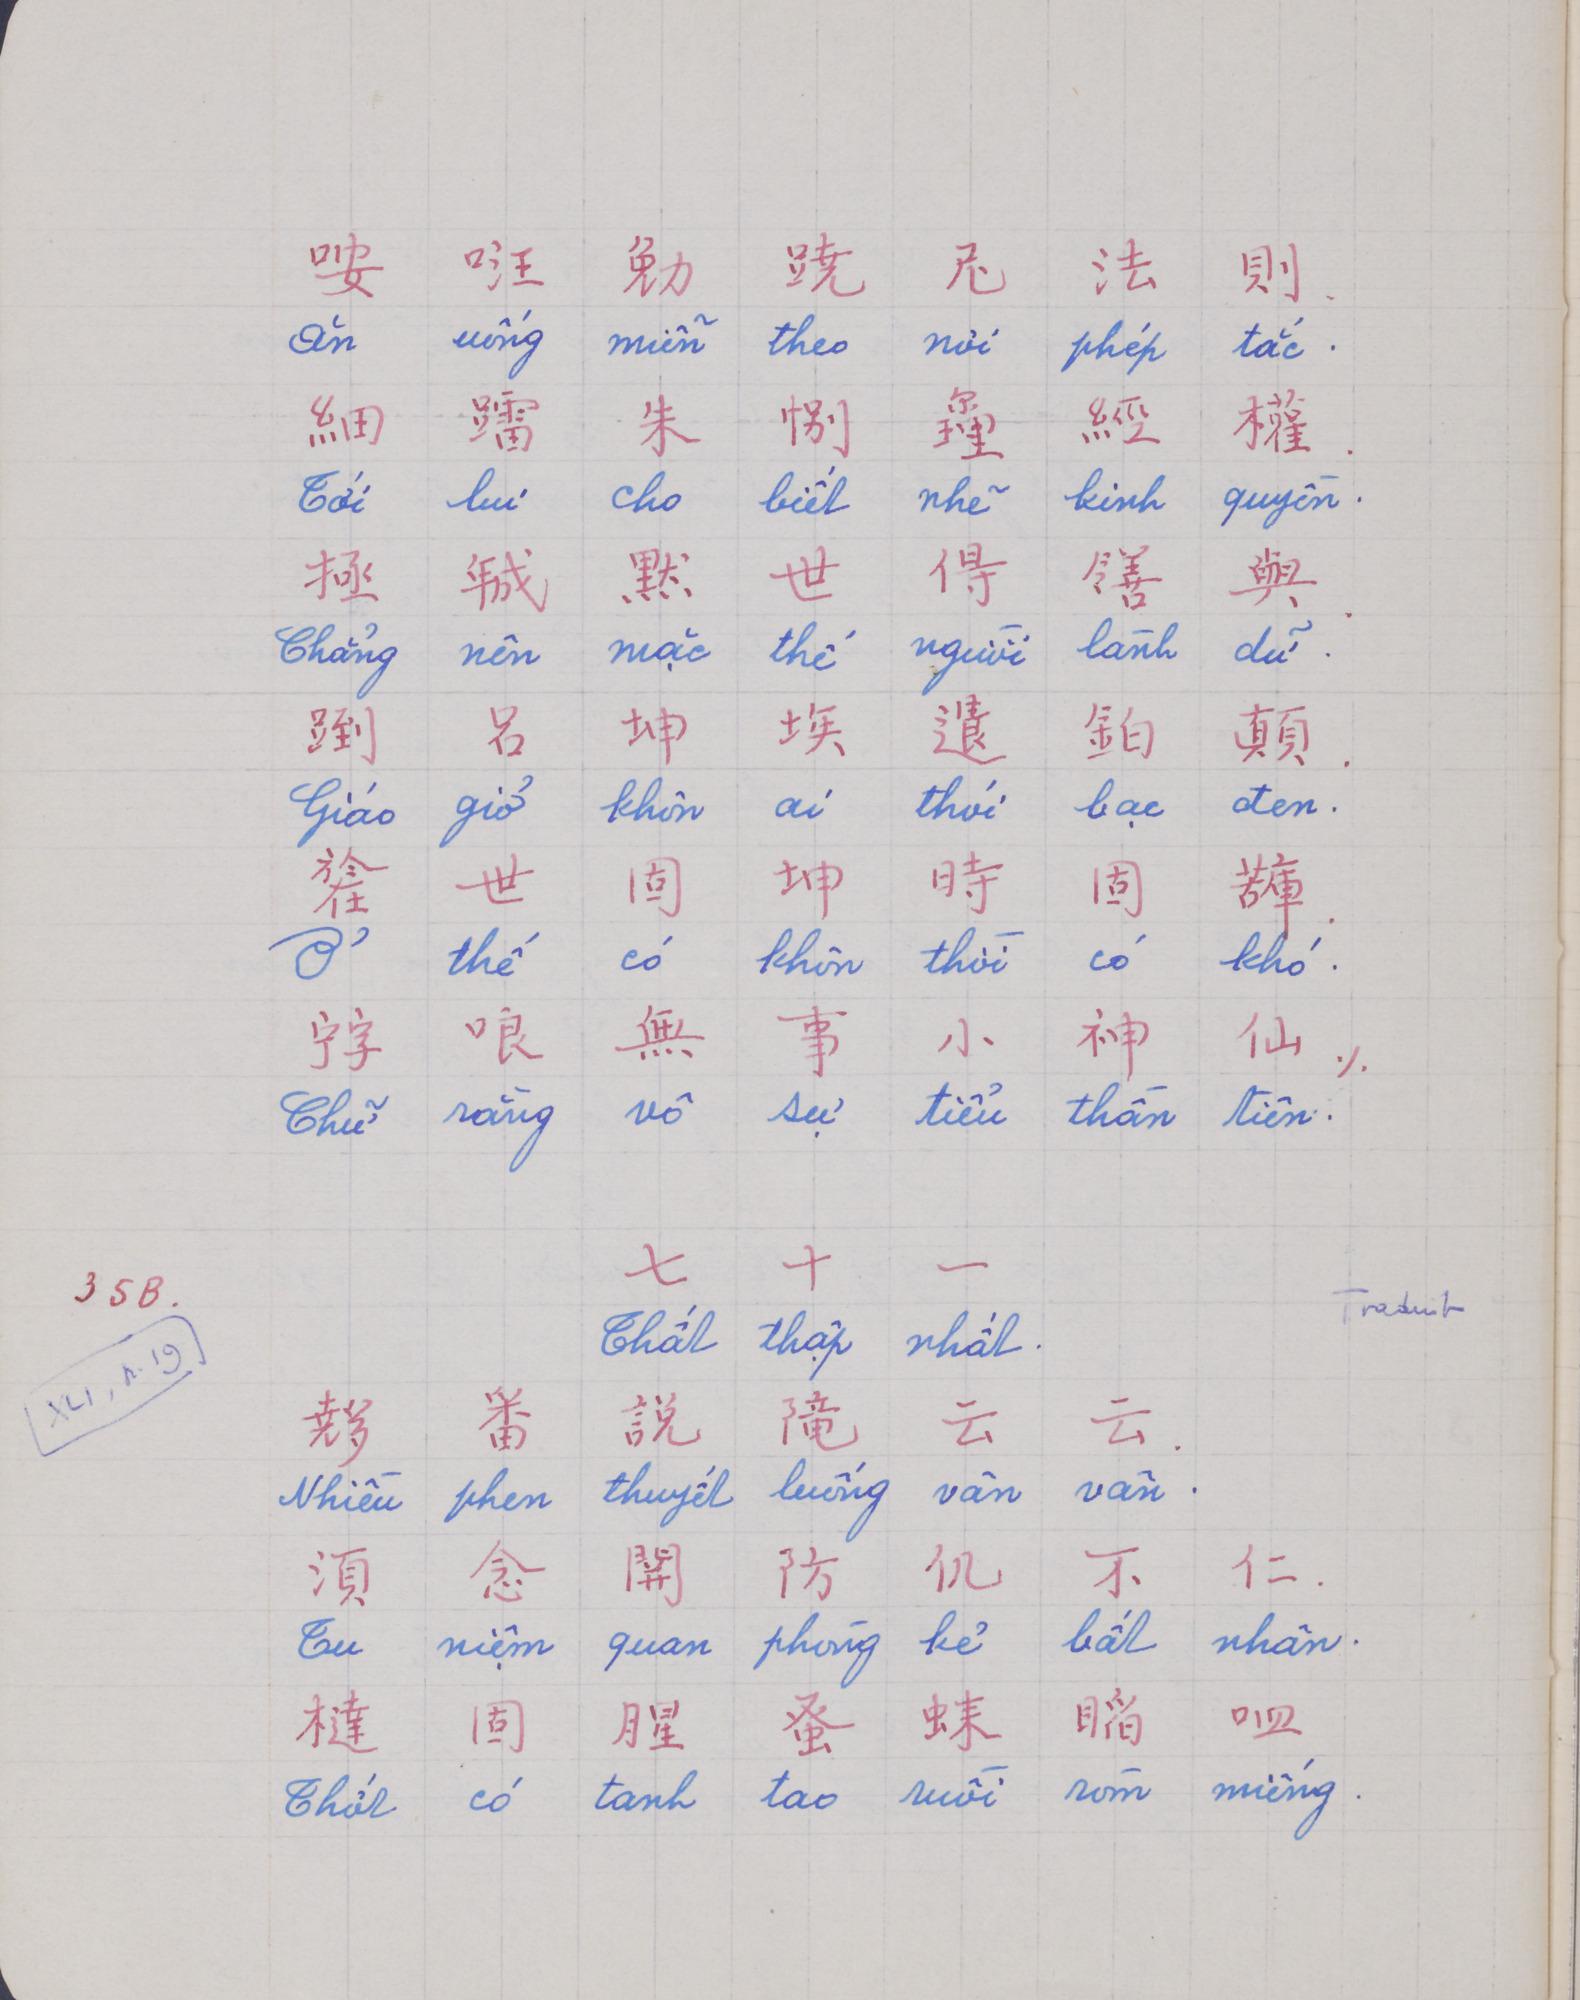 咹 㕵 勉 蹺 尼 法 則.
Ăn uống miễn theo nơi phép tắc.
細 蹓 朱 別 經 權.
Tới lui cho biết nhẽ kinh quyền.
極 𢧚 默 世 得 與.
Chẳng nên mặc thế người lành dữ.
呂 坤 埃 鉑 顛.
Giáo giở khôn ai thói bạc đen.
世 固 坤 時 固.
Ở thế có khôn thời có khó.
𡨸 哴 無 事 小 神 仙 ٪
Chữ rằng vô sự tiểu thần tiên.
七 十 一
35B.
Thất thập nhất.
Traduit
XLI, n. 19
番 説 云 云.
Nhiều phen thuyết luống vân vân.
須 念 開 防 仉 不 仁.
Tu niệm quan phòng kẻ bất nhân.
撻 固 腥 蚤 蝳 𠰘
Thớt có tanh tao ruồi ròm miếng.